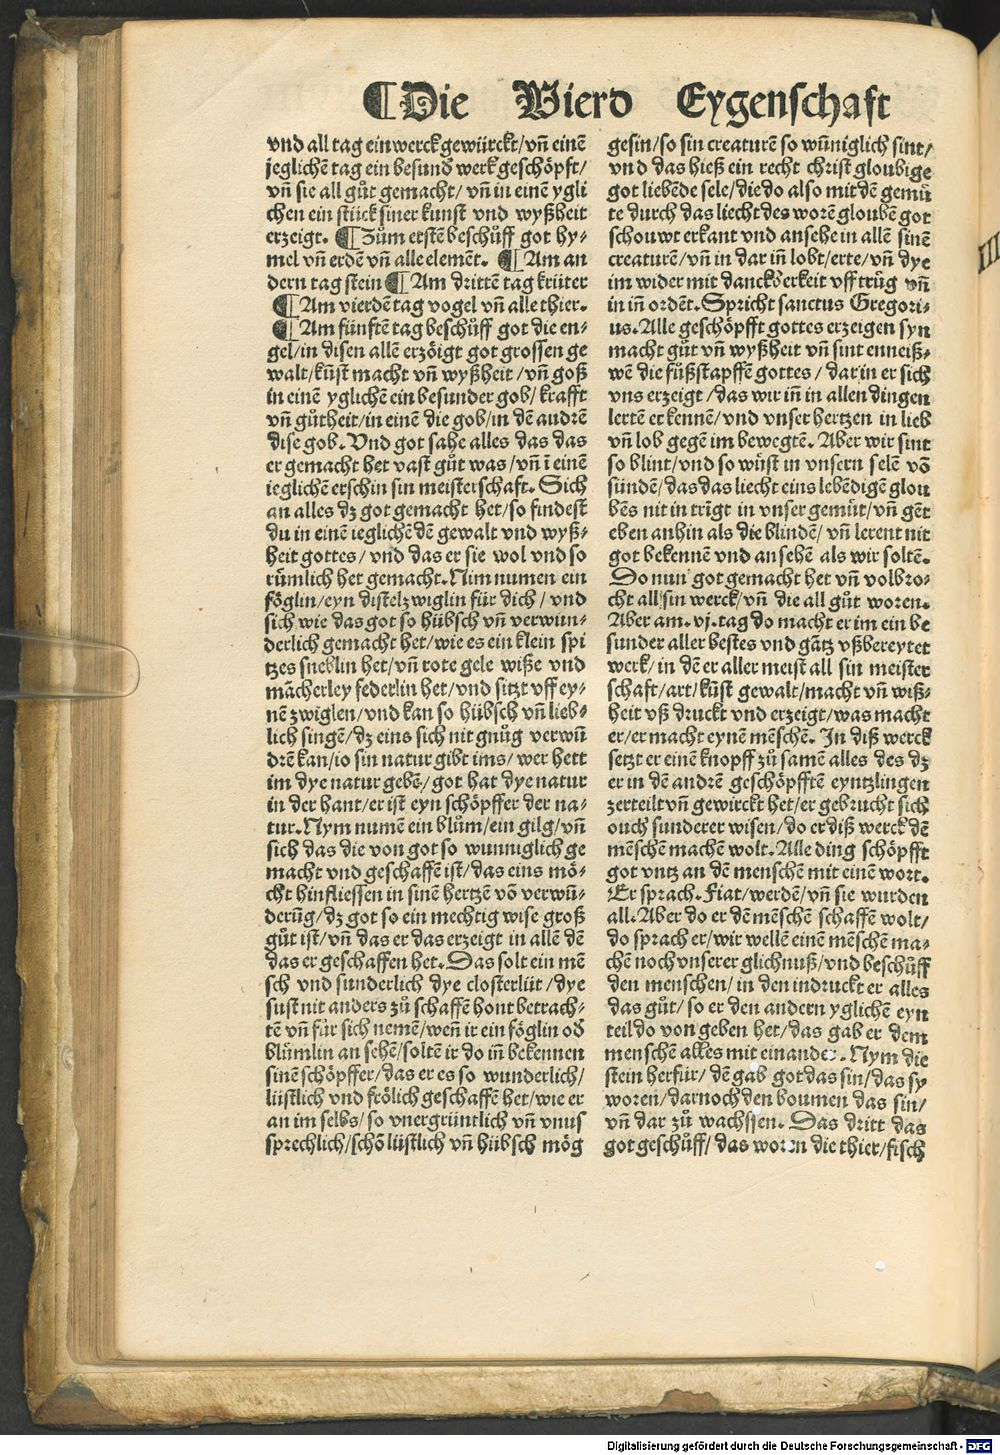 ¶Die Vierd Eygenschaft
vnd all tag ein werck gewürckt/vn̄ einē
jeglichē tag ein besund werk geschöpft/
vn̄ sie all gůt gemacht/ vn̄ in einē ygli
chen ein stück siner kunst vnd wyßheit
erzeigt. ¶Zům erstē beschůff got hy⸗
mel vn̄ erdē vn̄ alle elemēt. ¶Am an
dern tag stein ¶Am drittē tag krüter
¶Am vierdē tag vogel vn̄ alle thier.
¶Am fünftē tag beschůff got die en⸗
gel/in disen allē erzöigt got grossen ge
walt/kūst macht vn̄ wyßheit/vn̄ goß
in einē yglichē ein besunder gob/krafft
vn̄ gůtheit/in einē die gob/in dē andrē
dise gob. Vnd got sahe alles das das
er gemacht het vast gůt was/vn̄ ī einē
ieglichē erschin sin meisterschaft. Sich
an alles dz got gemacht het/so findest
du in einē ieglichē dē gewalt vnd wyß⸗
heit gottes/ vnd das er sie wol vnd so
rümlich het gemacht. Nim numen ein
föglin/eyn distelzwiglin für dich/ vnd
sich wie das got so hübsch vn̄ verwun⸗
derlich gemacht het/wie es ein klein spi
tzes sneblin het/vn̄ rote gele wiße vnd
mācherley federlin het/vnd sitzt vff ey⸗
nē zwiglen/vnd kan so hübsch vn̄ lieb⸗
lich singē/dz eins sich nit gnůg verwū
drē kan/io sin natur gibt ims/wer hett
im dye natur gebē/got hat dye natur
in der hant/er ist eyn schöpffer der na⸗
tur. Nym numē ein blům/ein gilg/vn̄
sich das die von got so wunniglich ge
macht vnd geschaffē ist/das eins mö⸗
cht hinfliessen in sinē hertzē vō verwū⸗
derūg/dz got so ein mechtig wise groß
gůt ist/vn̄ das er das erzeigt in allē dē
das er geschaffen het. Das solt ein mē
sch vnd sunderlich dye closterlüt/dye
sust nit anders zů schaffē hont betrach⸗
tē vn̄ für sich nemē/wen̄ ir ein föglin od
blůmlin an sehē/soltē ir do in̄ bekennen
sinē schöpffer/das er es so wunderlich/
lüstlich vnd frölich geschaffē het/wie er
an im selbs/so vnergrüntlich vn̄ vnus
sprechlich/schō lüstlich vn̄ hübsch mög
gesin/so sin creaturē so wūniglich sint/
vnd das hieß ein recht christ gloubige
got liebēde sele/die do also mit dē gemü
te durch das liecht des worē gloubē got
schouwt erkant vnd ansehe in allē sinē
creaturē/vn̄ in dar in̄ lobt/erte/vn̄ dye
im wider mit danckberkeit vff trüg vn̄
in in̄ ordēt. Spricht sanctus Gregori⸗
us. Alle geschöpfft gottes erzeigen syn
macht gůt vn̄ wyßheit vn̄ sint enneiß⸗
wē die fůßstapffē gottes/ dar in er sich
vns erzeigt/das wir in̄ in allen dingen
lertē erkennē/vnd vnser hertzen in lieb
vn̄ lob gegē im bewegtē. Aber wir sint
so blint/vnd so wüst in vnsern selē vō
sündē/das das liecht eins lebēdigē glou
bēs nit in trigt in vnser gemüt/vn̄ gēt
eben anhin als die blindē/ vn̄ lerent nit
got bekennē vnd ansehē als wir soltē.
Do nun got gemacht het vn̄ volbro⸗
cht all sin werck/vn̄ die all gůt woren.
Aber am. vj. tag do macht er im ein be
sunder aller bestes vnd gātz vßbereytet
werk/ in dē er aller meist all sin meister
schaft/art/kūst gewalt/macht vn̄ wiß⸗
heit vß druckt vnd erzeigt/was macht
er/er macht eynē mēschē. In diß werck
setzt er einē knopff zů samē alles des dz
er in dē andrē geschöpfftē eyntzlingen
zerteilt vn̄ gewirckt het/er gebrucht sich
ouch sunderer wisen/do er diß werck dē
mēschē machē wolt. Alle ding schöpfft
got vntz an dē menschē mit einē wort.
Er sprach. Fiat/werdē/vn̄ sie wurden
all. Aber do er dē mēschē schaffē wolt/
do sprach er/wir wellē einē mēschē ma⸗
chē noch vnserer glichnuß/vnd beschůff
den menschen/ in den indruckt er alles
das gůt/ so er den andern yglichē eyn
teil do von geben het/das gab er dem
menschē alles mit einander. Nym die
stein herfür/ dē gab got das sin/das sy
woren/darnoch den boumen das sin/
vn̄ dar zů wachssen. Das dritt das
got geschůff/das woren die thier/fisch
Digitalisierung gefördert durch die Deutsche Forschungsgemeinschaft - DFG